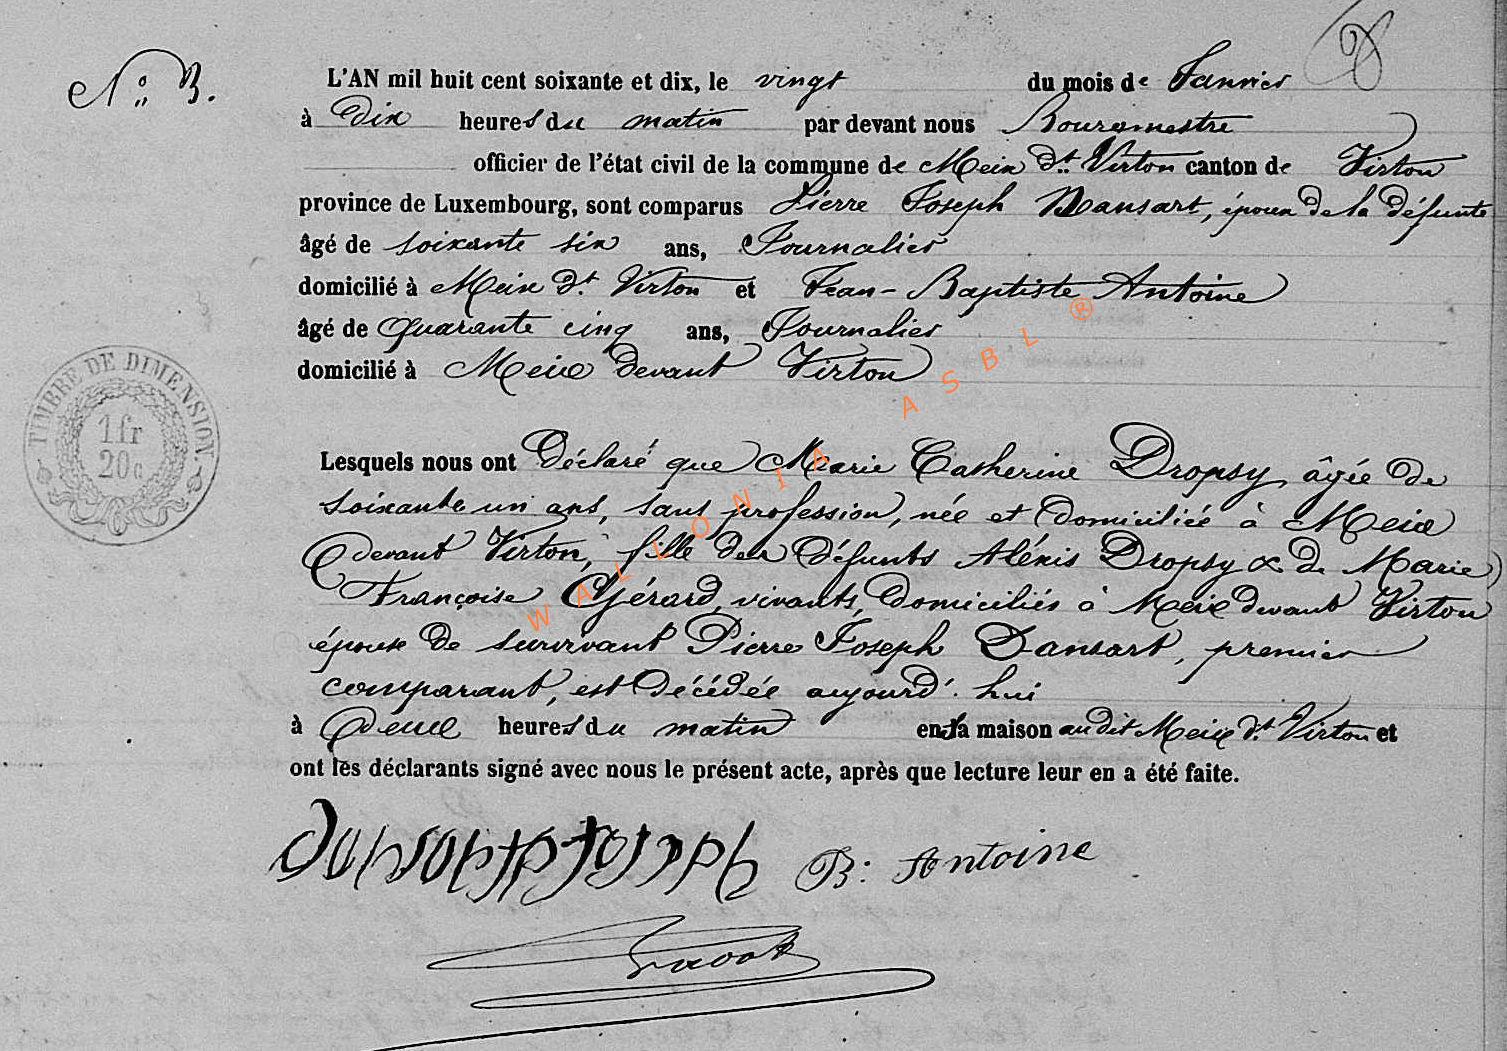 8
N° 3.
L'AN mil huit cent soixante et dix, le vingt du mois de Janvier
à dix heures du matin par devant nous Bourgmestre
officier de l'état civil de la commune de Meix dt Virton canton de Virton
province de Luxembourg, sont comparus Pierre Joseph Dansart, époux de la défunte
âgé de soixante six ans, Journalier
domicilié à Meix dt Virton et Jean-Baptiste Antoine
âgé de quarante cinq ans, Journalier
domicilié à Meix devant Virton
Lesquels nous ont déclaré que Marie Catherine Dropsy, âgée de
soixante un ans, sans profession, née et domiciliée à Meix
devant Virton, fille des défunts Aléxis Dropsy & de Marie
Françoise Gérard, vivants, domiciliés à Meix devant Virton
épouse de survivant Pierre Joseph Dansart, premier
comparant, est décédée aujourd'hui
à deux heures du matin en sa maison au dit Meix dt Virton et
ont les déclarants signé avec nous le présent acte, après que lecture leur en a été faite.
B: Antoine
TIMBRE DE DIMENSION
1 fr
20c
WALLONIA ASBL ®